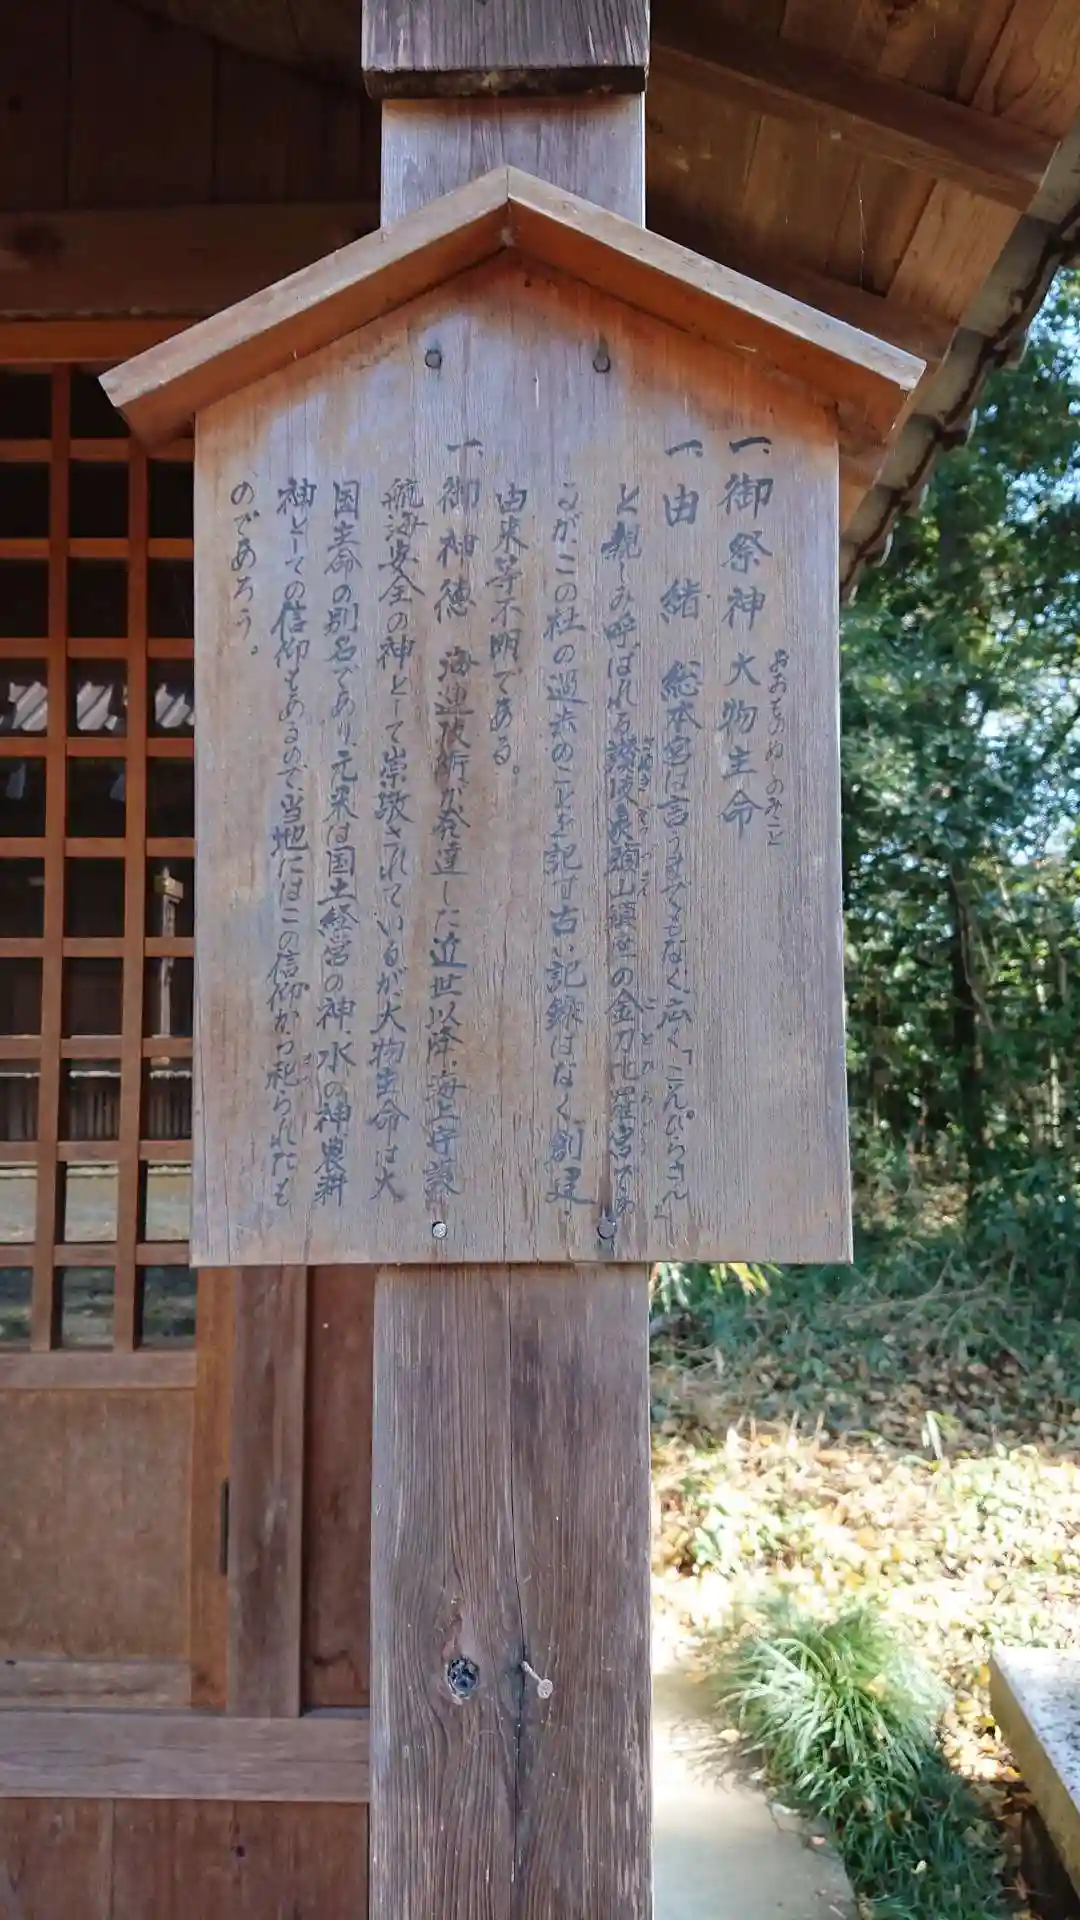 一、御祭神 大物主命
おおものぬしのみこと
一、由 緒 総本宮は言うまでもなく、広く「こんぴらさん」
と親しみ呼ばれる讃岐象頭山鎮座の金刀比羅宮であ
さぬき ぞうづさん ことひらぐう
るが、この社の過去のことを記す古い記録はなく創建・
由来等不明である。
一、御神徳 海運技術が発達した近世以降、海上守護
航海安全の神として崇敬されているが、大物主命は大
国主命の別名であり、元来は国土経営の神、水の神、農耕
神としての信仰もあるので、当地にはこの信仰から祀られたも
まつ
のであろう。